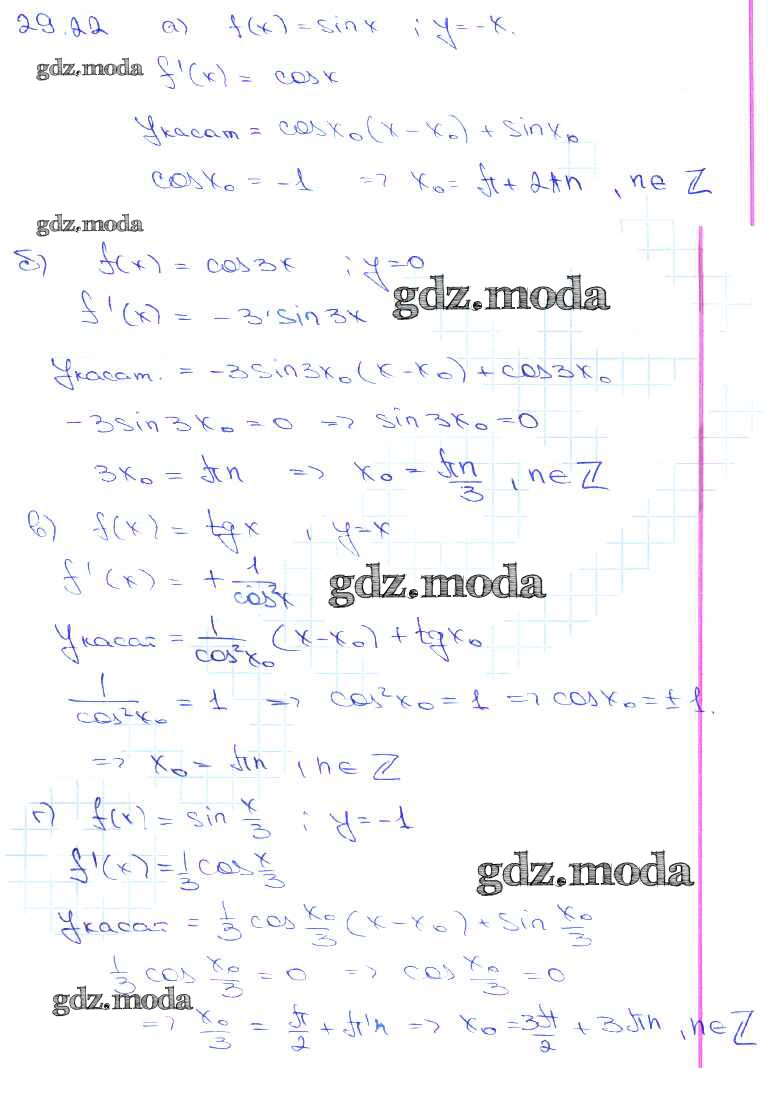 29.22 а) f(x) = sinx ; y=-x.
gdz.moda f'(x) = cosx
Yкасат = cosx₀(x-x₀) + sinx₀
cosx₀ = -1 => x₀ = π + 2πn , n∈ℤ
gdz.moda
б) f(x) = cos3x ; y=0
gdz.moda
f'(x) = -3·sin3x
Yкасат. = -3sin3x₀(x-x₀) + cos3x₀
-3sin3x₀ = 0 => sin3x₀ = 0
3x₀ = πn => x₀ = πn/3 , n∈ℤ
в) f(x) = tgx , y=x
f'(x) = + 1/cos²x gdz.moda
Yкасат = 1/cos²x₀ (x-x₀) + tgx₀
1/cos²x₀ = 1 => cos²x₀ = 1 => cosx₀ = ±1.
=> x₀ = πn , n∈ℤ
г) f(x) = sin x/3 ; y=-1
f'(x) = 1/3 cos x/3
gdz.moda
Yкасат = 1/3 cos x₀/3 (x-x₀) + sin x₀/3
1/3 cos x₀/3 = 0 => cos x₀/3 = 0
gdz.moda
=> x₀/3 = π/2 + πn => x₀ = 3π/2 + 3πn , n∈ℤ